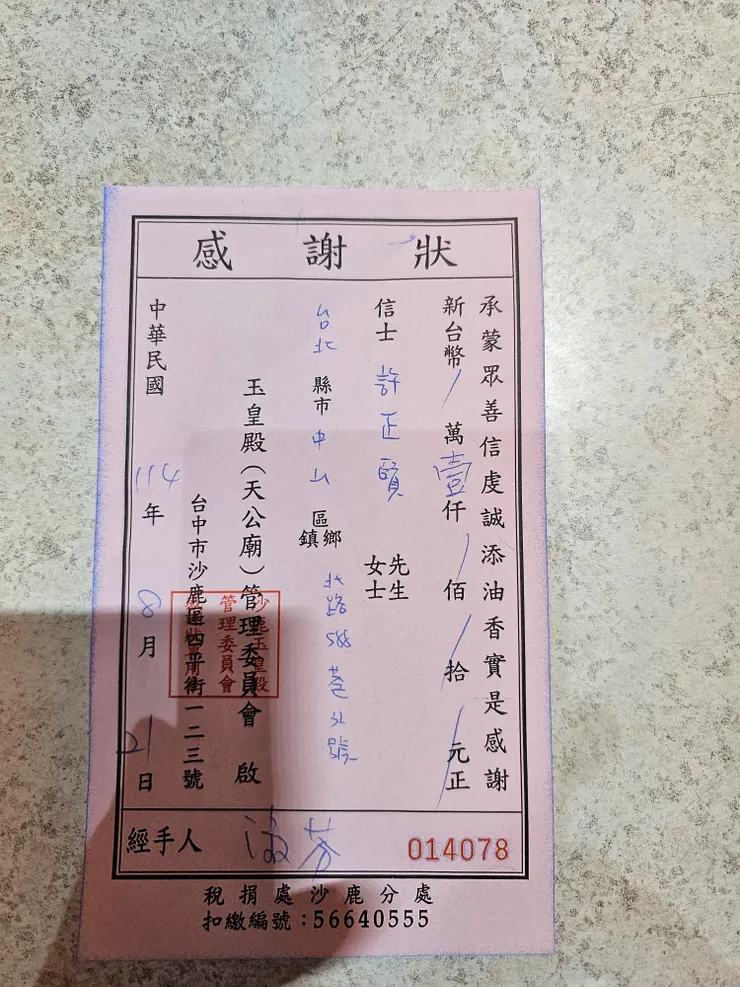 感謝狀
承蒙眾善信虔誠添油香實是感謝
新台幣/萬壹仟/佰/拾/元正
信士 許正頤 先生 女士
台北 縣市 中山 區 鄉鎮 北路588巷31號
玉皇殿(天公廟)管理委員會 啟
台中市沙鹿區四平街一二三號
沙鹿玉皇殿
管理委員會
中華民國 114年 8月 21日
經手人 淑芬
014078
稅捐處沙鹿分處
扣繳編號:56640555